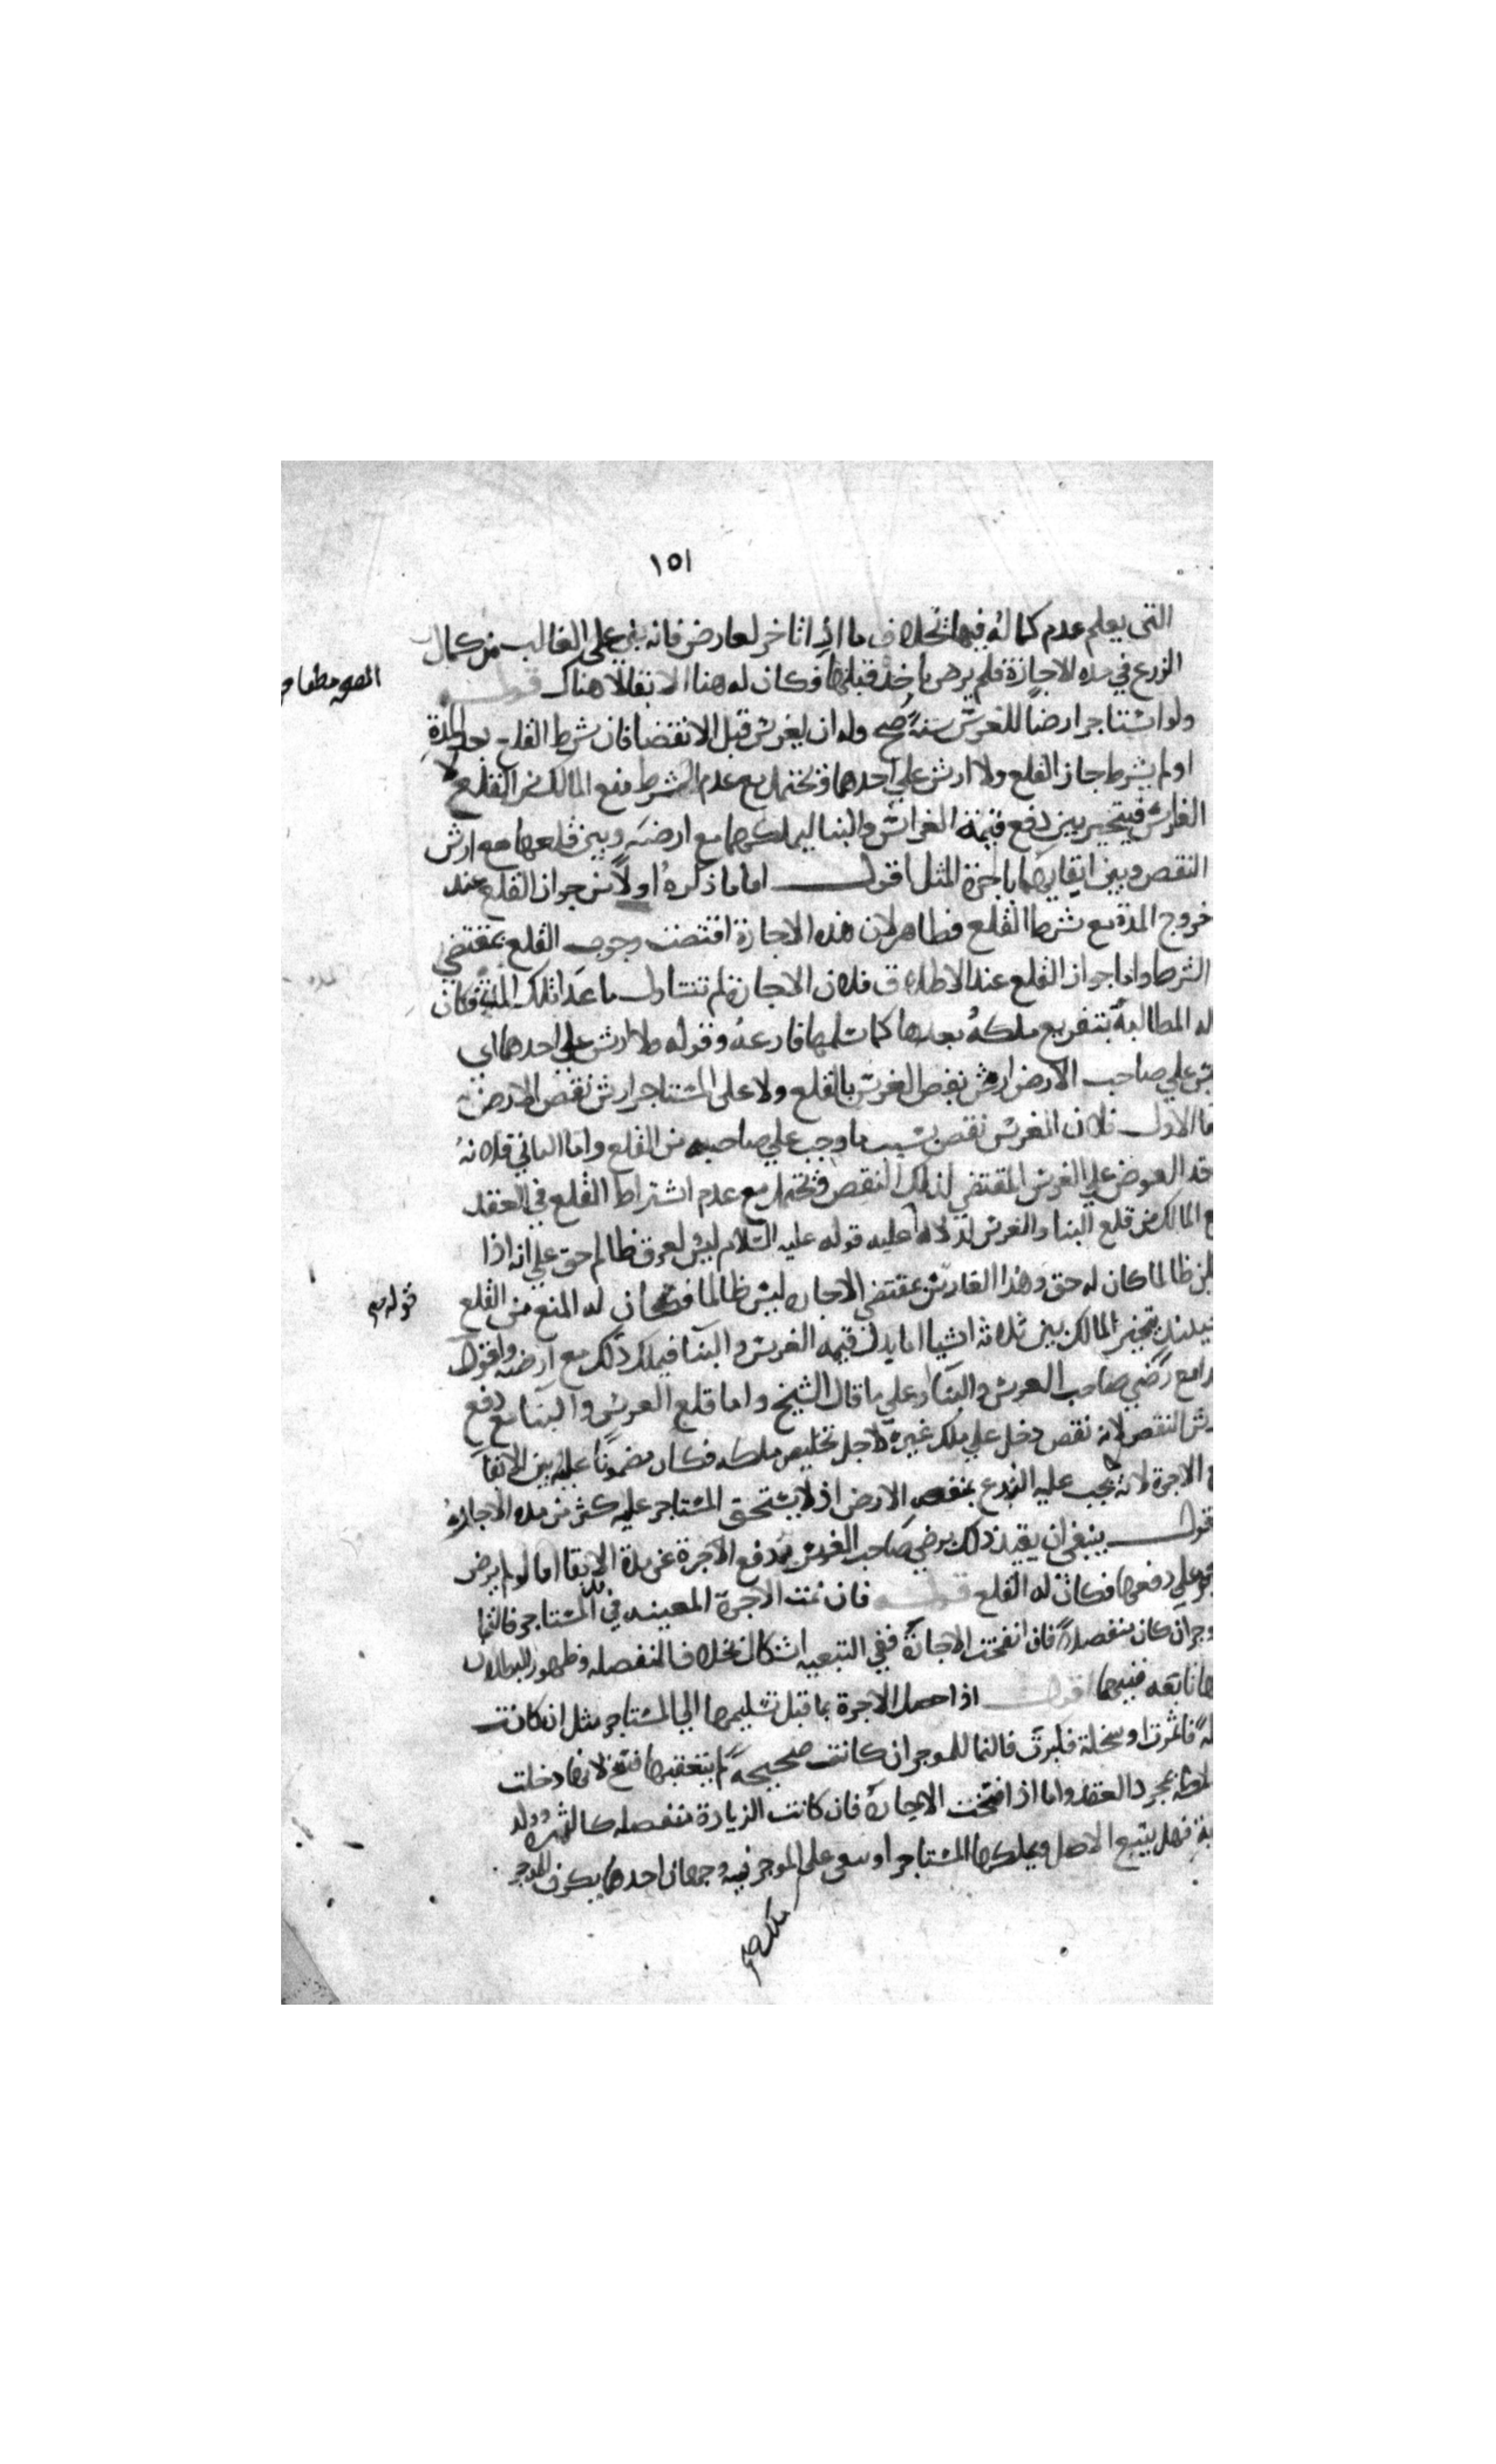 ١٥١
التى يعلم عدم كماله فيها بخلاف ما اذا تاخر لعارض فانه بنى على الغالب من كمال
الزرع في مده الاجازة فلم يرض باخذ قبلها فكان له هنا الابقا لا هناك قوله
ولو استاجر ارضا للغرس سنة صح وله ان يغرس قبل الانقضا فان شرط القلع بعد المدة
او لم يشرط جاز القلع ولا ارش على احدهما ويحتمل مع عدم الشرط منع المالك من القلع لا
الغارس فيتخير بين دفع قيمة الغراس والبنا ليملكهما مع ارضه وبين قلعهما مع ارش
النقص وبين ابقايهما باجرة المثل اقول اما ما ذكره اولا من جواز القلع عند
خروج المدة مع شرط القلع فظاهر لان هذه الاجارة اقتضت وجوب القلع بمقتضي
الشرط واما جواز القلع عند الاطلاق فلان الاجارة لم تتناول ما عدا تلك المدة فكان
له المطالبة بتفريع ملكه بعدها كما تسلمها فارغه وقوله ولا ارش على احدهما اى
على صاحب الارض ارش نقص الغرس بالقلع ولا على المستاجر ارش نقص الارض
ما الاول فلان الغرس نقص بسبب ما وجب على صاحبه من القلع واما الثاني فلانه
خذ العوض علي الغرس المقتضي لذلك النقص ويحتمل مع عدم اشتراط القلع في العقد
ع المالك من قلع البنا والغرس لدلالة عليه قوله عليه السلام ليس لعرق ظالم حق علي انه اذا
يكن ظالما كان له حق وهذا الغارس بمقتضي الاجاره ليس ظالما فكان له المنع من القلع
قوله
حينئذ يتخير المالك بين ثلاثه اشيا اما بذل قيمه الغرس والبنا فيملك ذلك مع ارضه واقول
هذا مع رضي صاحب الغرس والبنا وعلي ما قال الشيخ واما قلع الغرس والبنا مع دفع
رش النقص لانه نقص دخل علي ملك غيره لاجل تخليص ملكه فكان مضمونا عليه بين الابقا
ع الاجرة لانه يجب عليه الارض اذ لا يستحق المستاجر عليه كثر من مده الاجاره
قول ينبغي ان يقيد ذلك برضي صاحب الغرس بدفع الاجرة عن مدة الابقا اما لو لم يرض
يجبر علي دفعها فكان له القلع قوله فان نمت الاجرة المعينه في يد المستاجر فالنما
وجر ان كان منفصلا فان انفسخت الاجارة ففي التبعيه اشكال بخلاف المنفصله وظهور البطلان
ها تابعه فيهما اقول اذا حصل للاجرة نما قبل تسليمها الي المستاجر مثل ان كانت
له فاثمرت او سخلة فكبرت فالنما للموجر ان كانت صحيحة لم يتعقبها فسخ لانها دخلت
ملكه بمجرد العقد واما اذا فسخت الاجارة فان كانت الزيادة منفصله كالثمره وولد
بة فهل يتبع الاصل ويملكها المستاجر او يبقى على الموجر فيه وجهان احدهما يكون للموجر